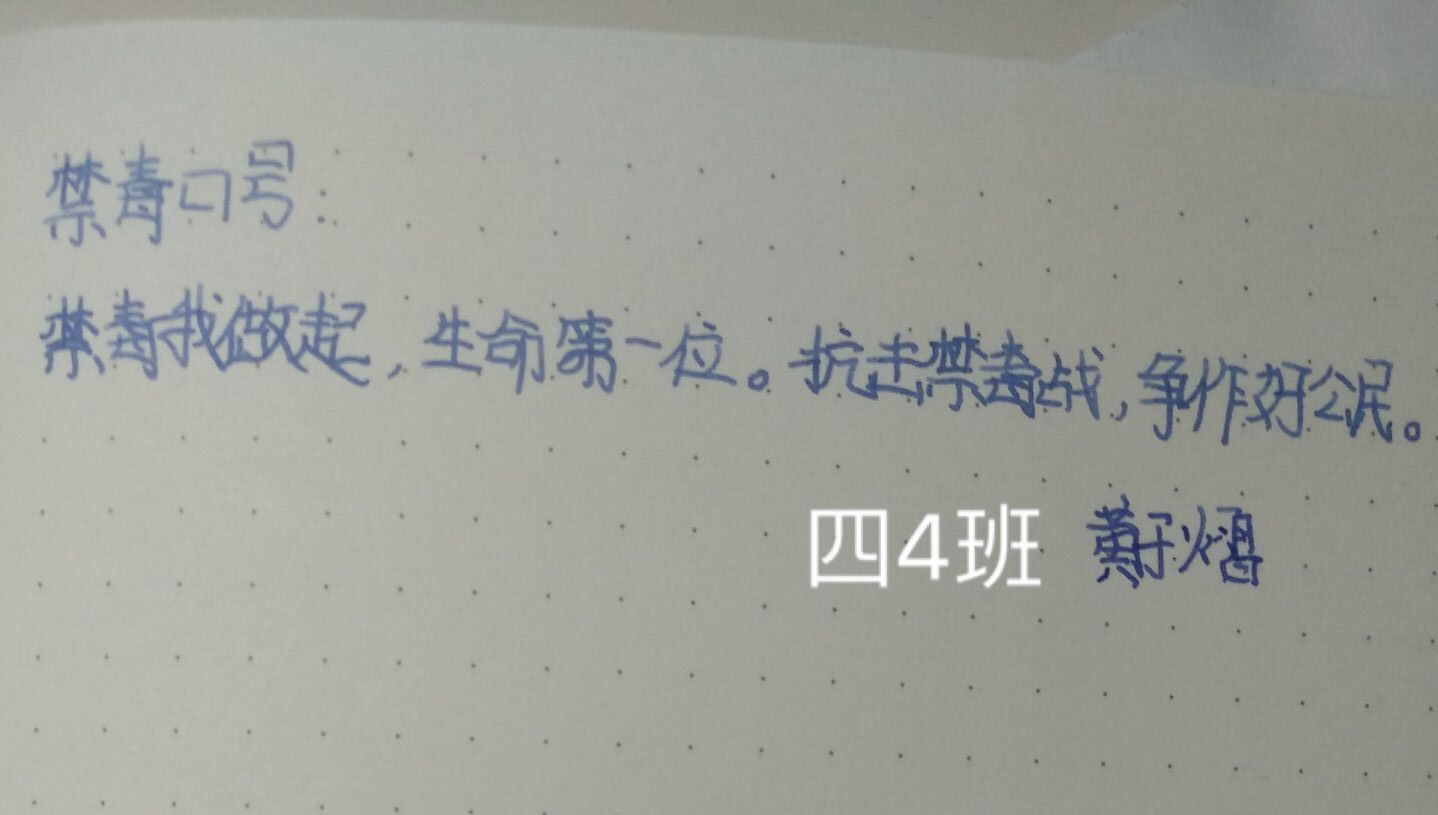 禁毒口号:
禁毒我做起,生命第一位。抗击禁毒战,争作好公民。
四4班 黄子熠